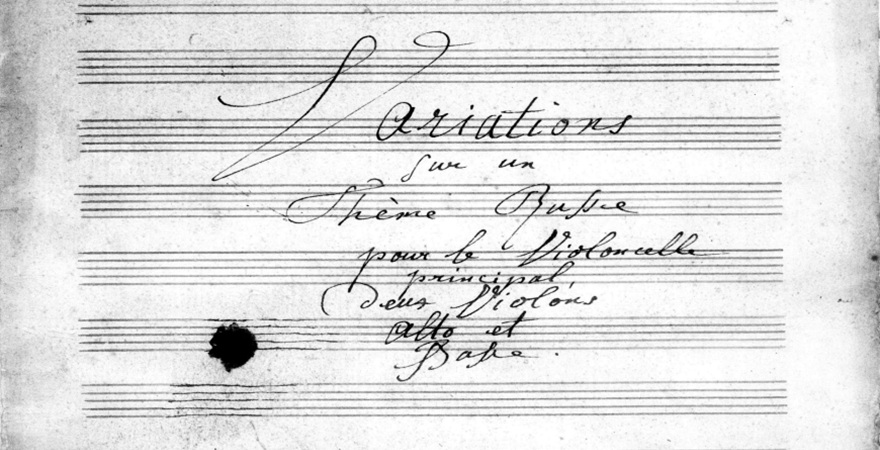 Variations
sur un
Thème Russe
pour le Violoncelle
principal
deux Violons
Alto et
Basse.